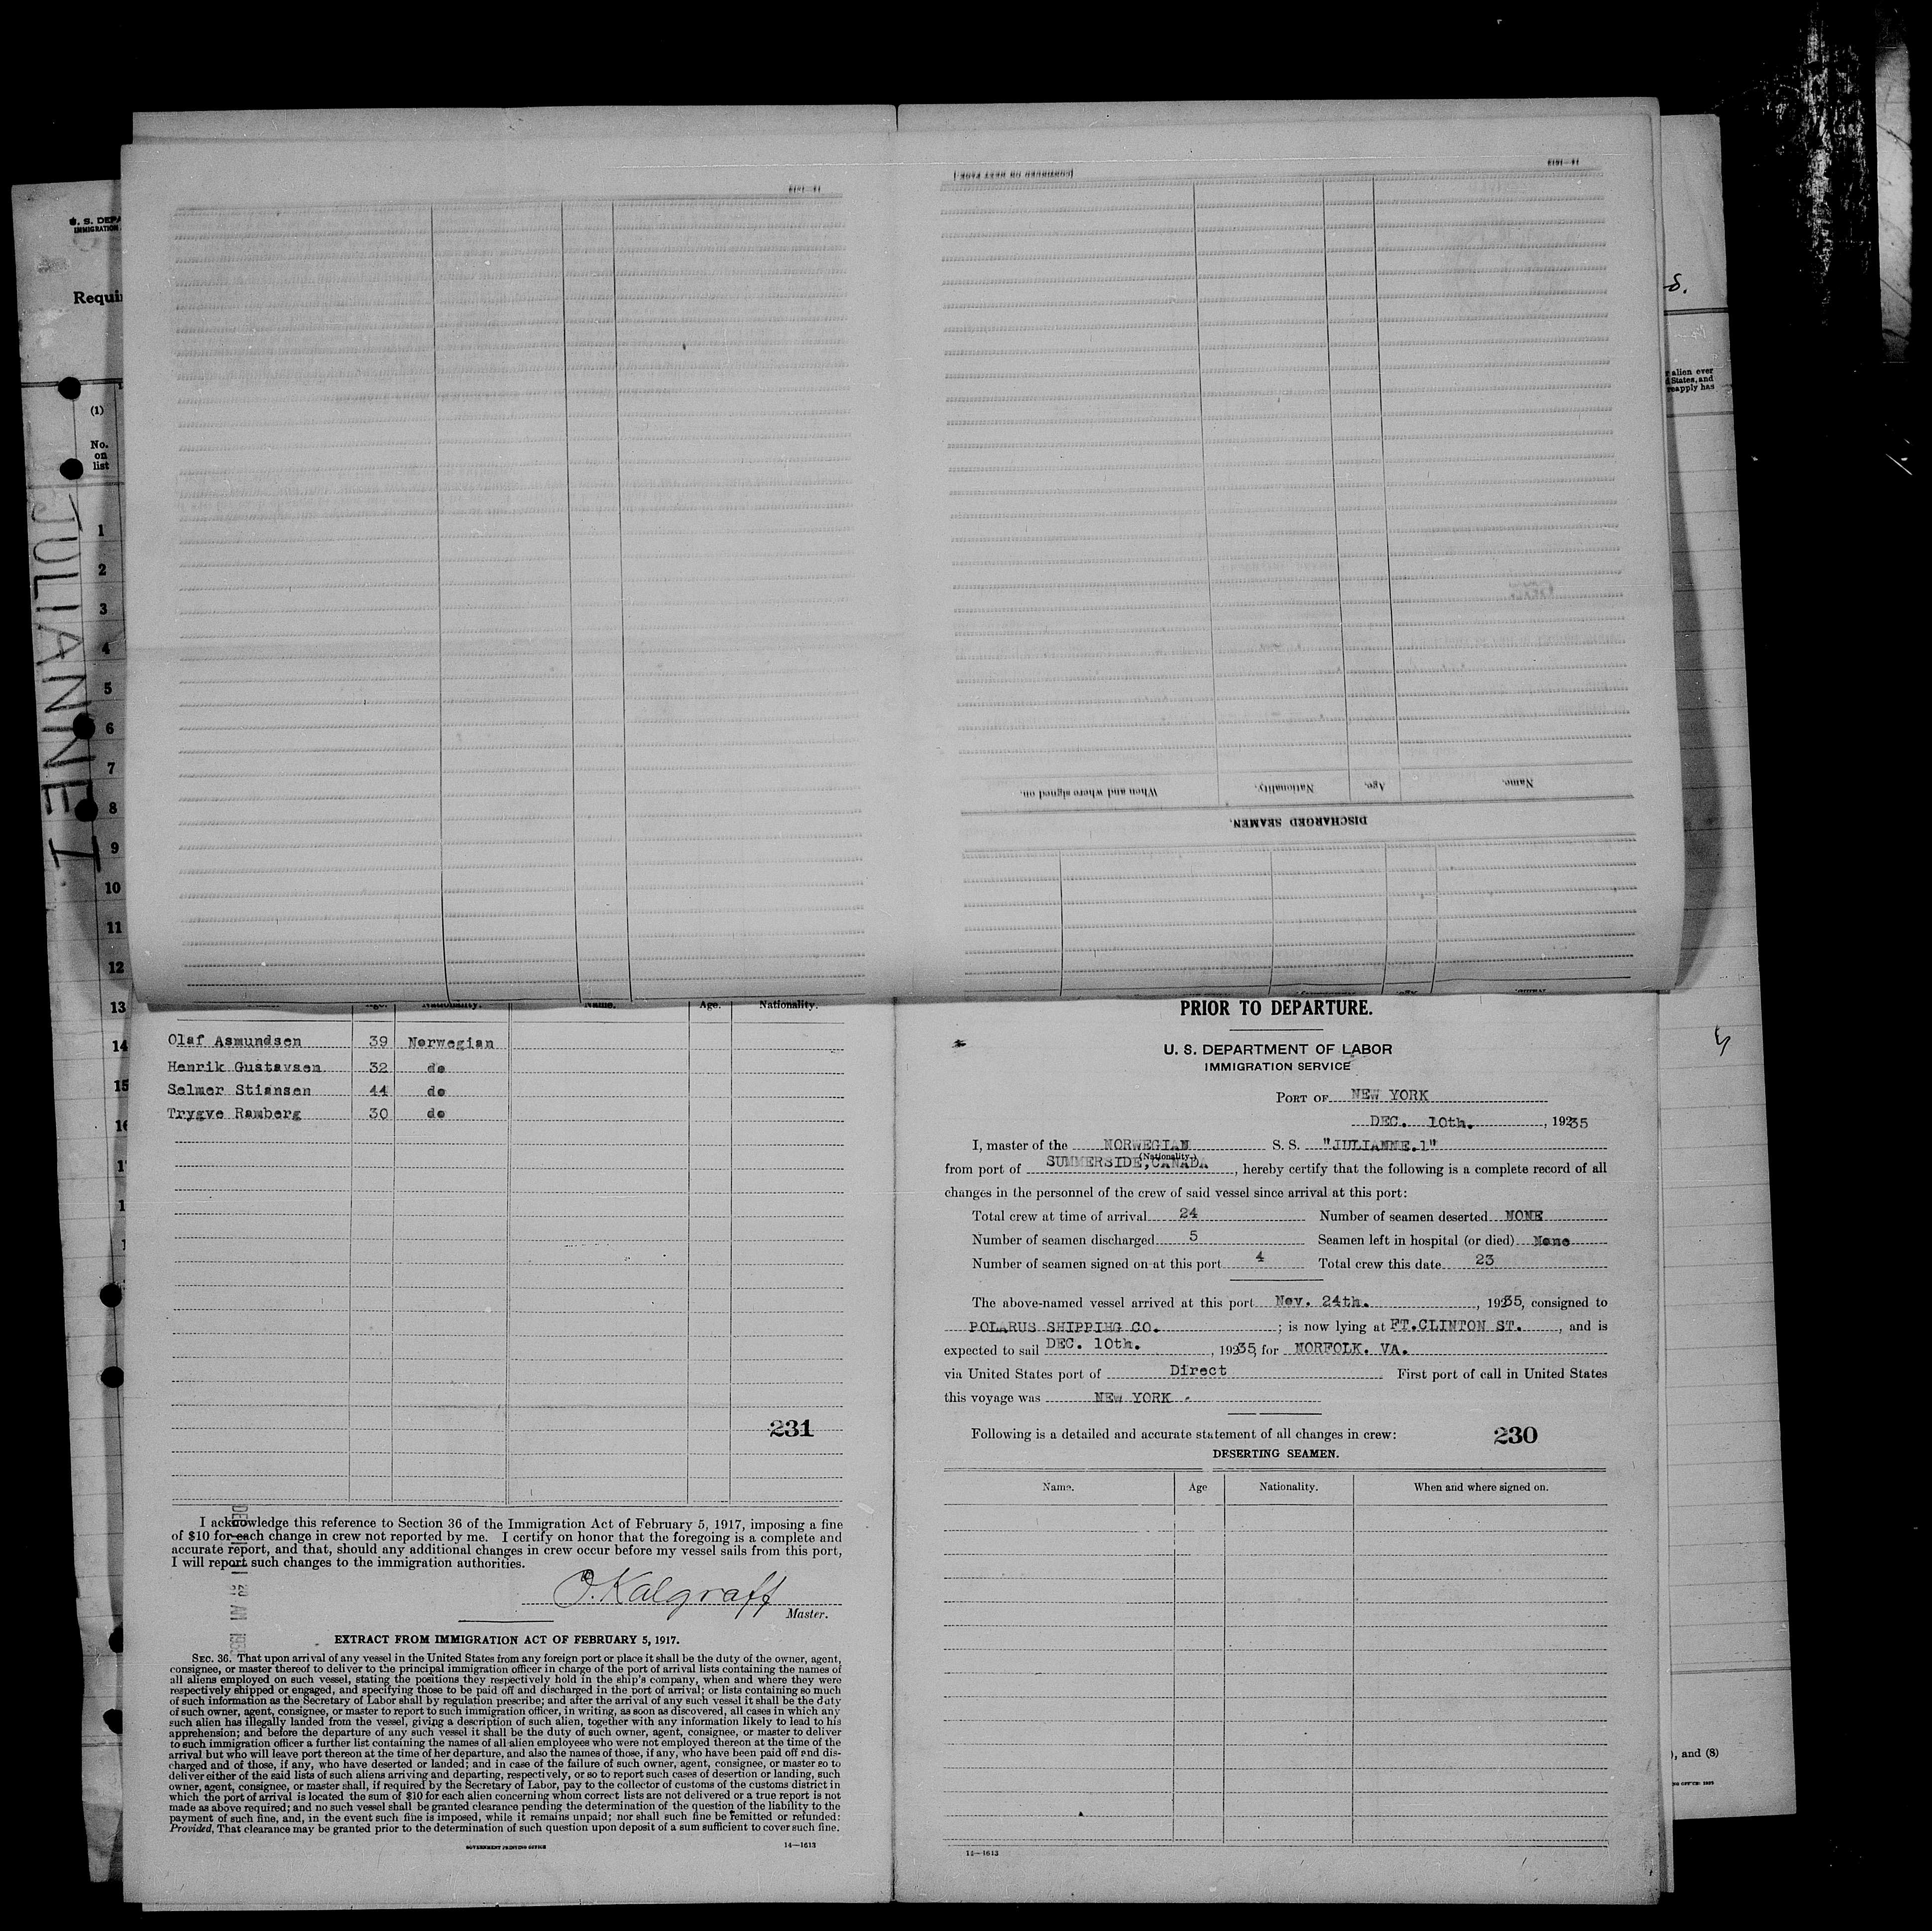 U. S. DEPA
IMMIGRATION
Requir
(1)
No.
on
list
1
2
3
4
5
6
7
8
9
10
11
12
13
14
15
JULIANNE I
14—1613
[CONTINUED ON NEXT PAGE.]
14—1613
When and where signed on.
Nationality.
Age.
Name.
DISCHARGED SEAMEN.
r alien ever
d States, and
reapply has
Age. Nationality. Name. Age. Nationality.
Olaf Asmundsen 39 Norwegian
Henrik Gustavsen 32 do
Selmer Stiansen 44 do
Trygve Ramberg 30 do
231
I acknowledge this reference to Section 36 of the Immigration Act of February 5, 1917, imposing a fine
of $10 for each change in crew not reported by me. I certify on honor that the foregoing is a complete and
accurate report, and that, should any additional changes in crew occur before my vessel sails from this port,
I will report such changes to the immigration authorities.
O. Kalgraff
Master.
EXTRACT FROM IMMIGRATION ACT OF FEBRUARY 5, 1917.
SEC. 36. That upon arrival of any vessel in the United States from any foreign port or place it shall be the duty of the owner, agent,
consignee, or master thereof to deliver to the principal immigration officer in charge of the port of arrival lists containing the names of
all aliens employed on such vessel, stating the positions they respectively hold in the ship's company, when and where they were
respectively shipped or engaged, and specifying those to be paid off and discharged in the port of arrival; or lists containing so much
of such information as the Secretary of Labor shall by regulation prescribe; and after the arrival of any such vessel it shall be the duty
of such owner, agent, consignee, or master to report to such immigration officer, in writing, as soon as discovered, all cases in which any
such alien has illegally landed from the vessel, giving a description of such alien, together with any information likely to lead to his
apprehension; and before the departure of any such vessel it shall be the duty of such owner, agent, consignee, or master to deliver
to such immigration officer a further list containing the names of all alien employees who were not employed thereon at the time of the
arrival but who will leave port thereon at the time of her departure, and also the names of those, if any, who have been paid off and dis-
charged and of those, if any, who have deserted or landed; and in case of the failure of such owner, agent, consignee, or master so to
deliver either of the said lists of such aliens arriving and departing, respectively, or so to report such cases of desertion or landing, such
owner, agent, consignee, or master shall, if required by the Secretary of Labor, pay to the collector of customs of the customs district in
which the port of arrival is located the sum of $10 for each alien concerning whom correct lists are not delivered or a true report is not
made as above required; and no such vessel shall be granted clearance pending the determination of the question of the liability to the
payment of such fine, and, in the event such fine is imposed, while it remains unpaid; nor shall such fine be remitted or refunded:
Provided, That clearance may be granted prior to the determination of such question upon deposit of a sum sufficient to cover such fine.
GOVERNMENT PRINTING OFFICE
14—1613
PRIOR TO DEPARTURE.
U. S. DEPARTMENT OF LABOR
IMMIGRATION SERVICE
PORT OF NEW YORK
DEC. 10th., 19235
I, master of the NORWEGIAN S. S. "JULIANNE.1"
(Nationality.)
from port of SUMMERSIDE, CANADA, hereby certify that the following is a complete record of all
changes in the personnel of the crew of said vessel since arrival at this port:
Total crew at time of arrival 24 Number of seamen deserted NONE
Number of seamen discharged 5 Seamen left in hospital (or died) None
Number of seamen signed on at this port 4 Total crew this date 23
The above-named vessel arrived at this port Nov. 24th., 19235, consigned to
POLARUS SHIPPIHG CO.; is now lying at FT.CLINTON ST., and is
expected to sail DEC. 10th., 19235, for NORFOLK. VA.
via United States port of Direct First port of call in United States
this voyage was NEW YORK.
Following is a detailed and accurate statement of all changes in crew: 230
DESERTING SEAMEN.
Name. Age Nationality. When and where signed on.
14—1613
), and (8)